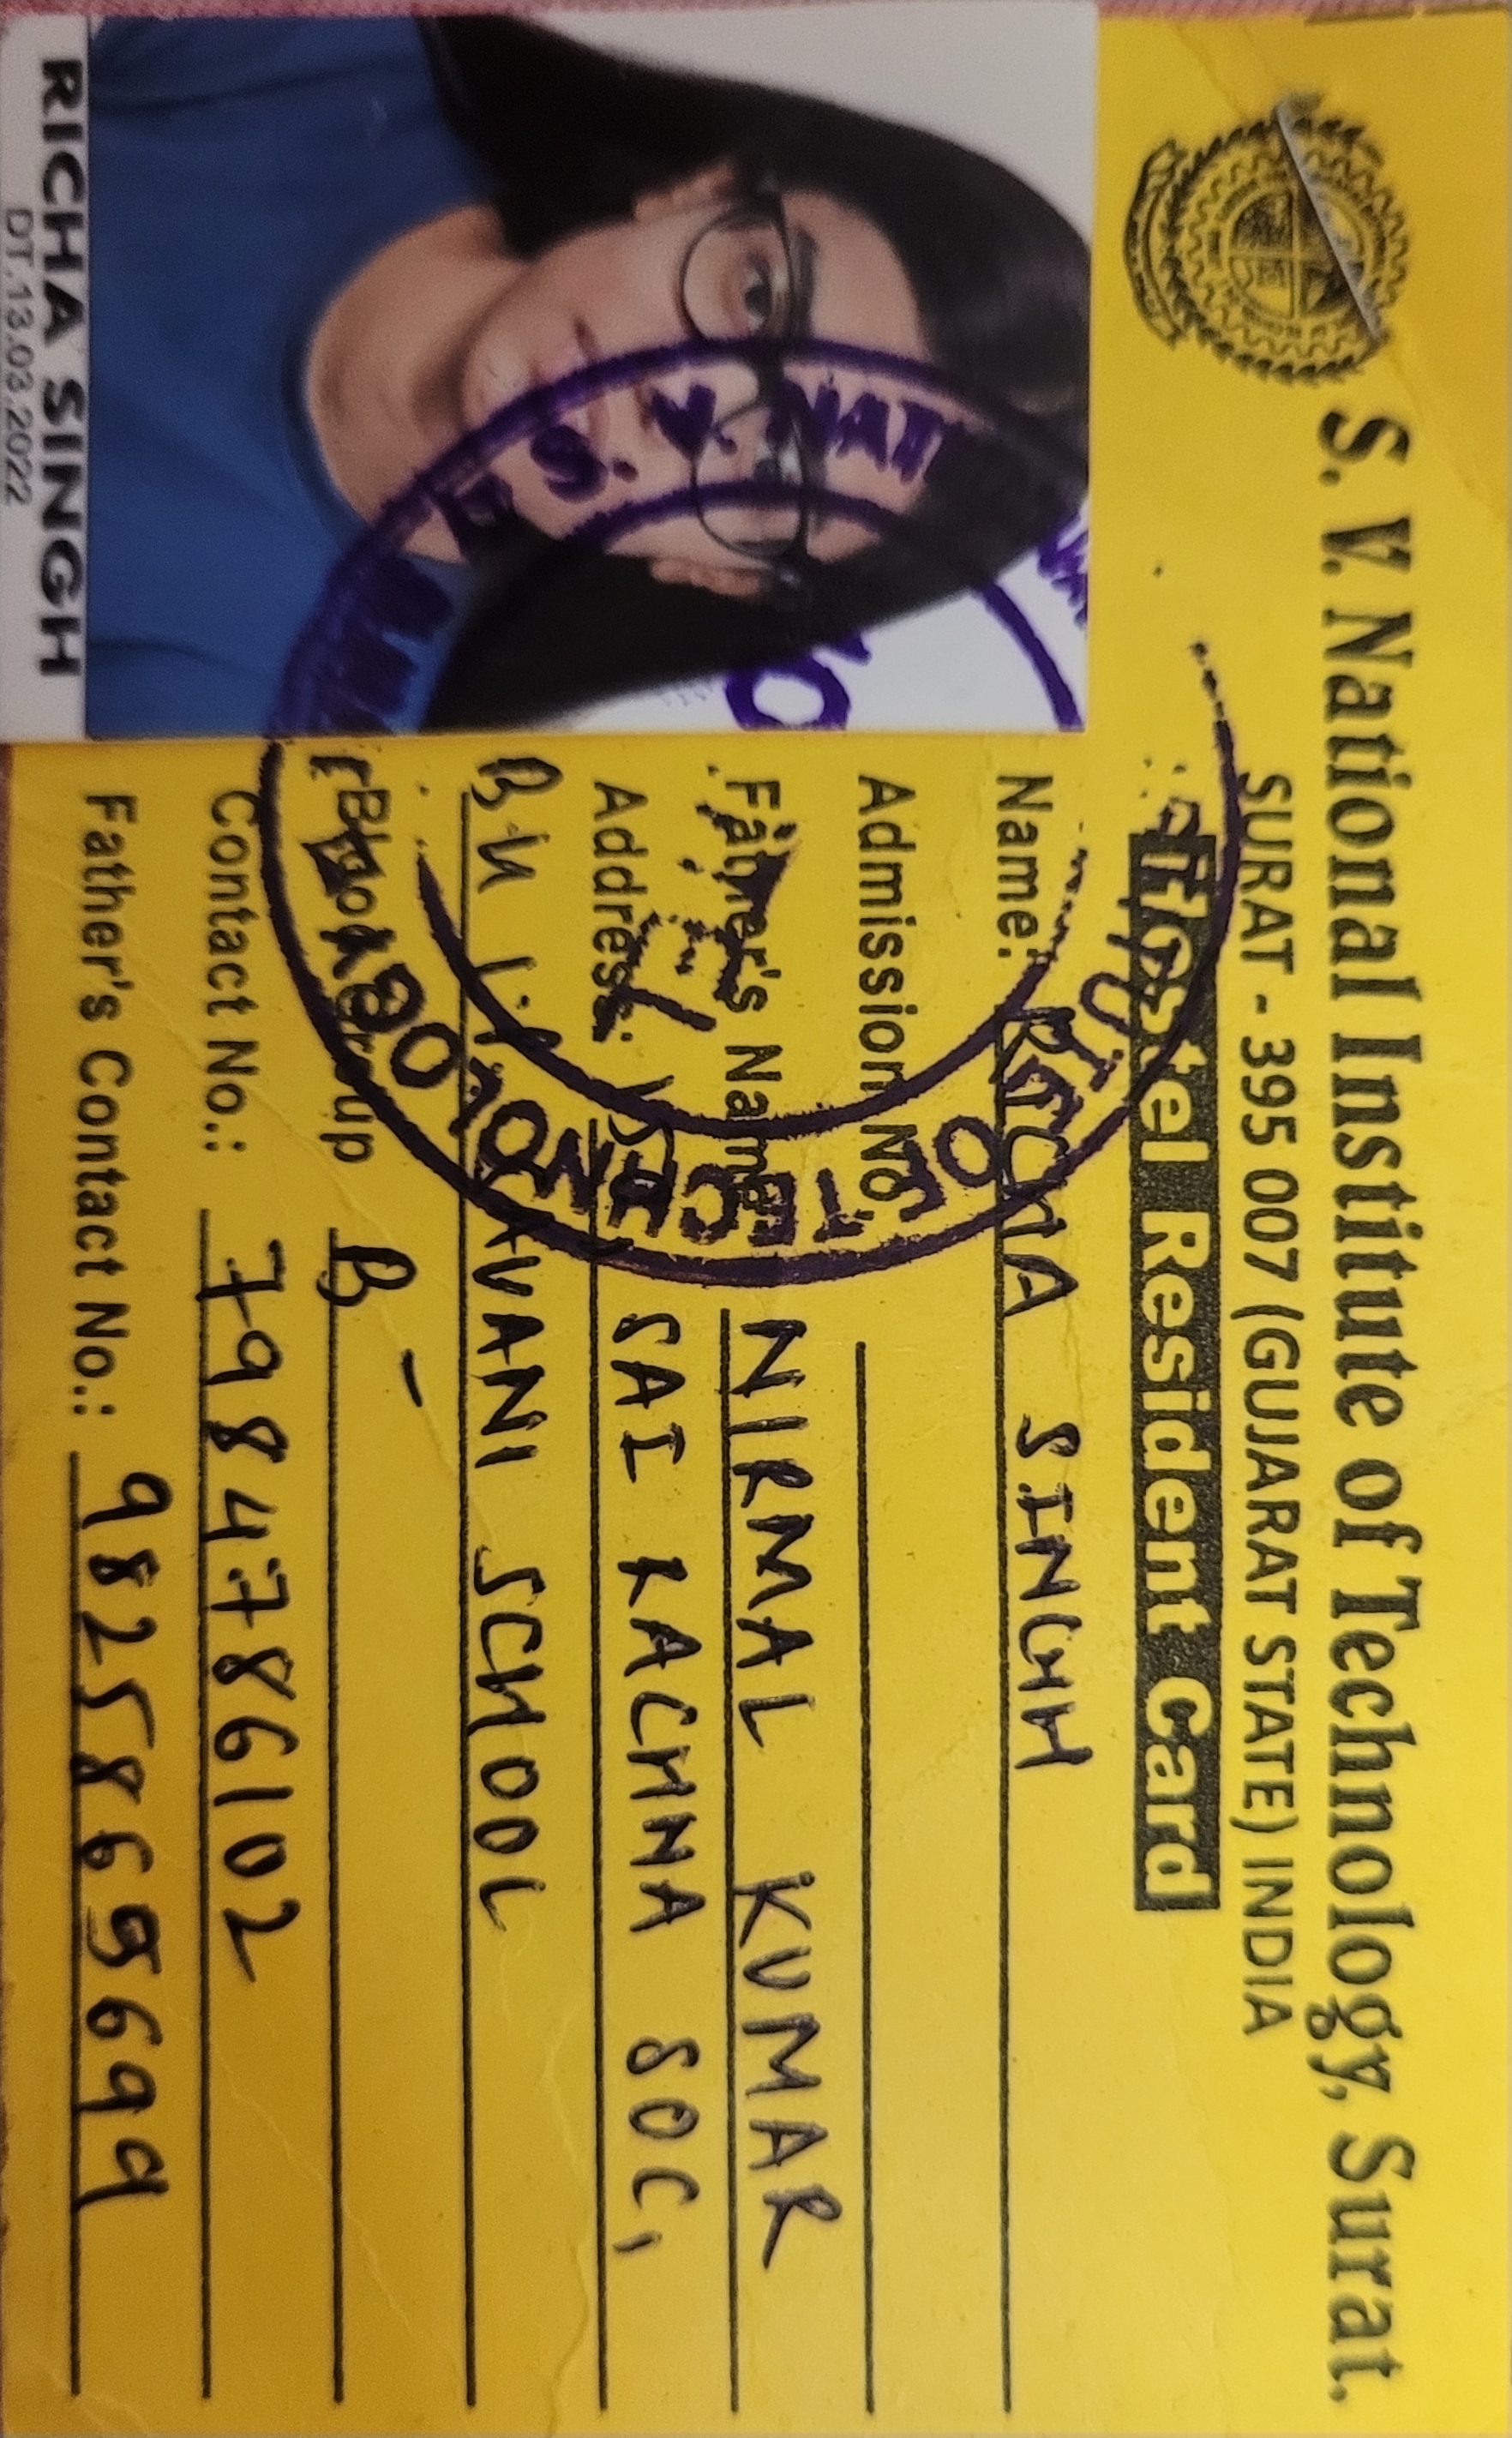 S. V. National Institute of Technology, Surat.
SURAT - 395 007 (GUJARAT STATE) INDIA
Hostel Resident Card
Name: RICHA SINGH
Admission No.
Father's Name NIRMAL KUMAR
Address: SAI RACHNA SOC,
SCHOOL
Blood Group B -
Contact No.: 7984786102
Father's Contact No.: 9825865699
RICHA SINGH
DT.13.03.2022
S. V. NATI
OF TECHNOLOGY